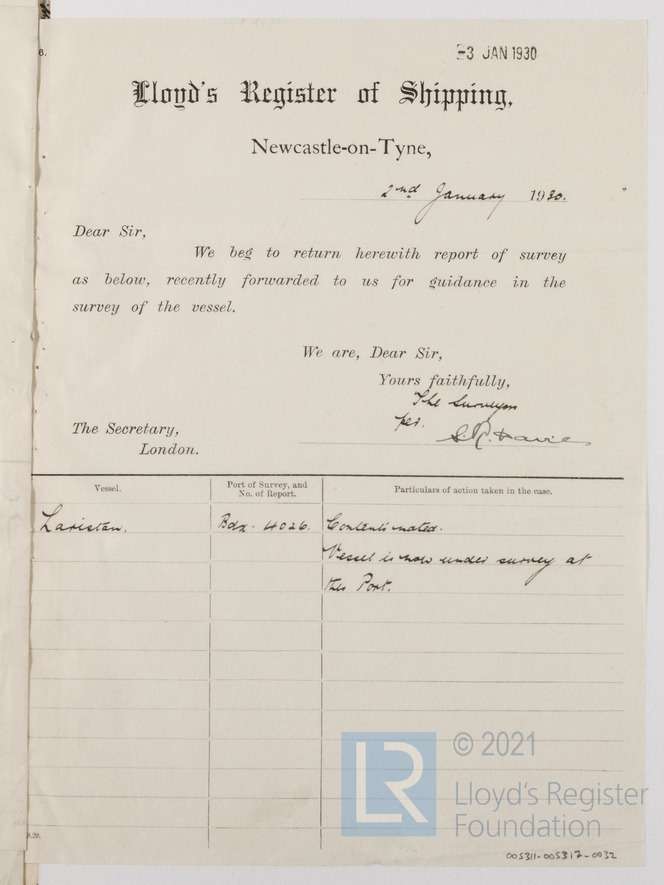 6.
-3 JAN 1930
Lloyd's Register of Shipping,
Newcastle-on-Tyne,
2nd January 1930.
Dear Sir,
We beg to return herewith report of survey
as below, recently forwarded to us for guidance in the
survey of the vessel.
We are, Dear Sir,
Yours faithfully,
The Surveyors
per.
The Secretary,
London.
Vessel.
Port of Survey, and
No. of Report.
Particulars of action taken in the case.
Laristan.
Bdx. 4026.
Contents noted.
Vessel is now under survey at
this Port.
LR
© 2021
Lloyd's Register
Foundation
005311-005317-0032